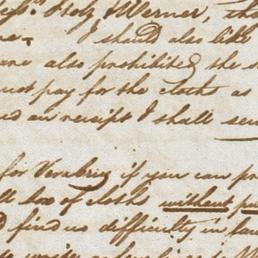 Werner, tha
I should also like
are also prohibited the s
not pay for the cloth as
and on receipt I shall sen
for Veracruz if you can pr
ll box of cloths without pu
find no difficulty in